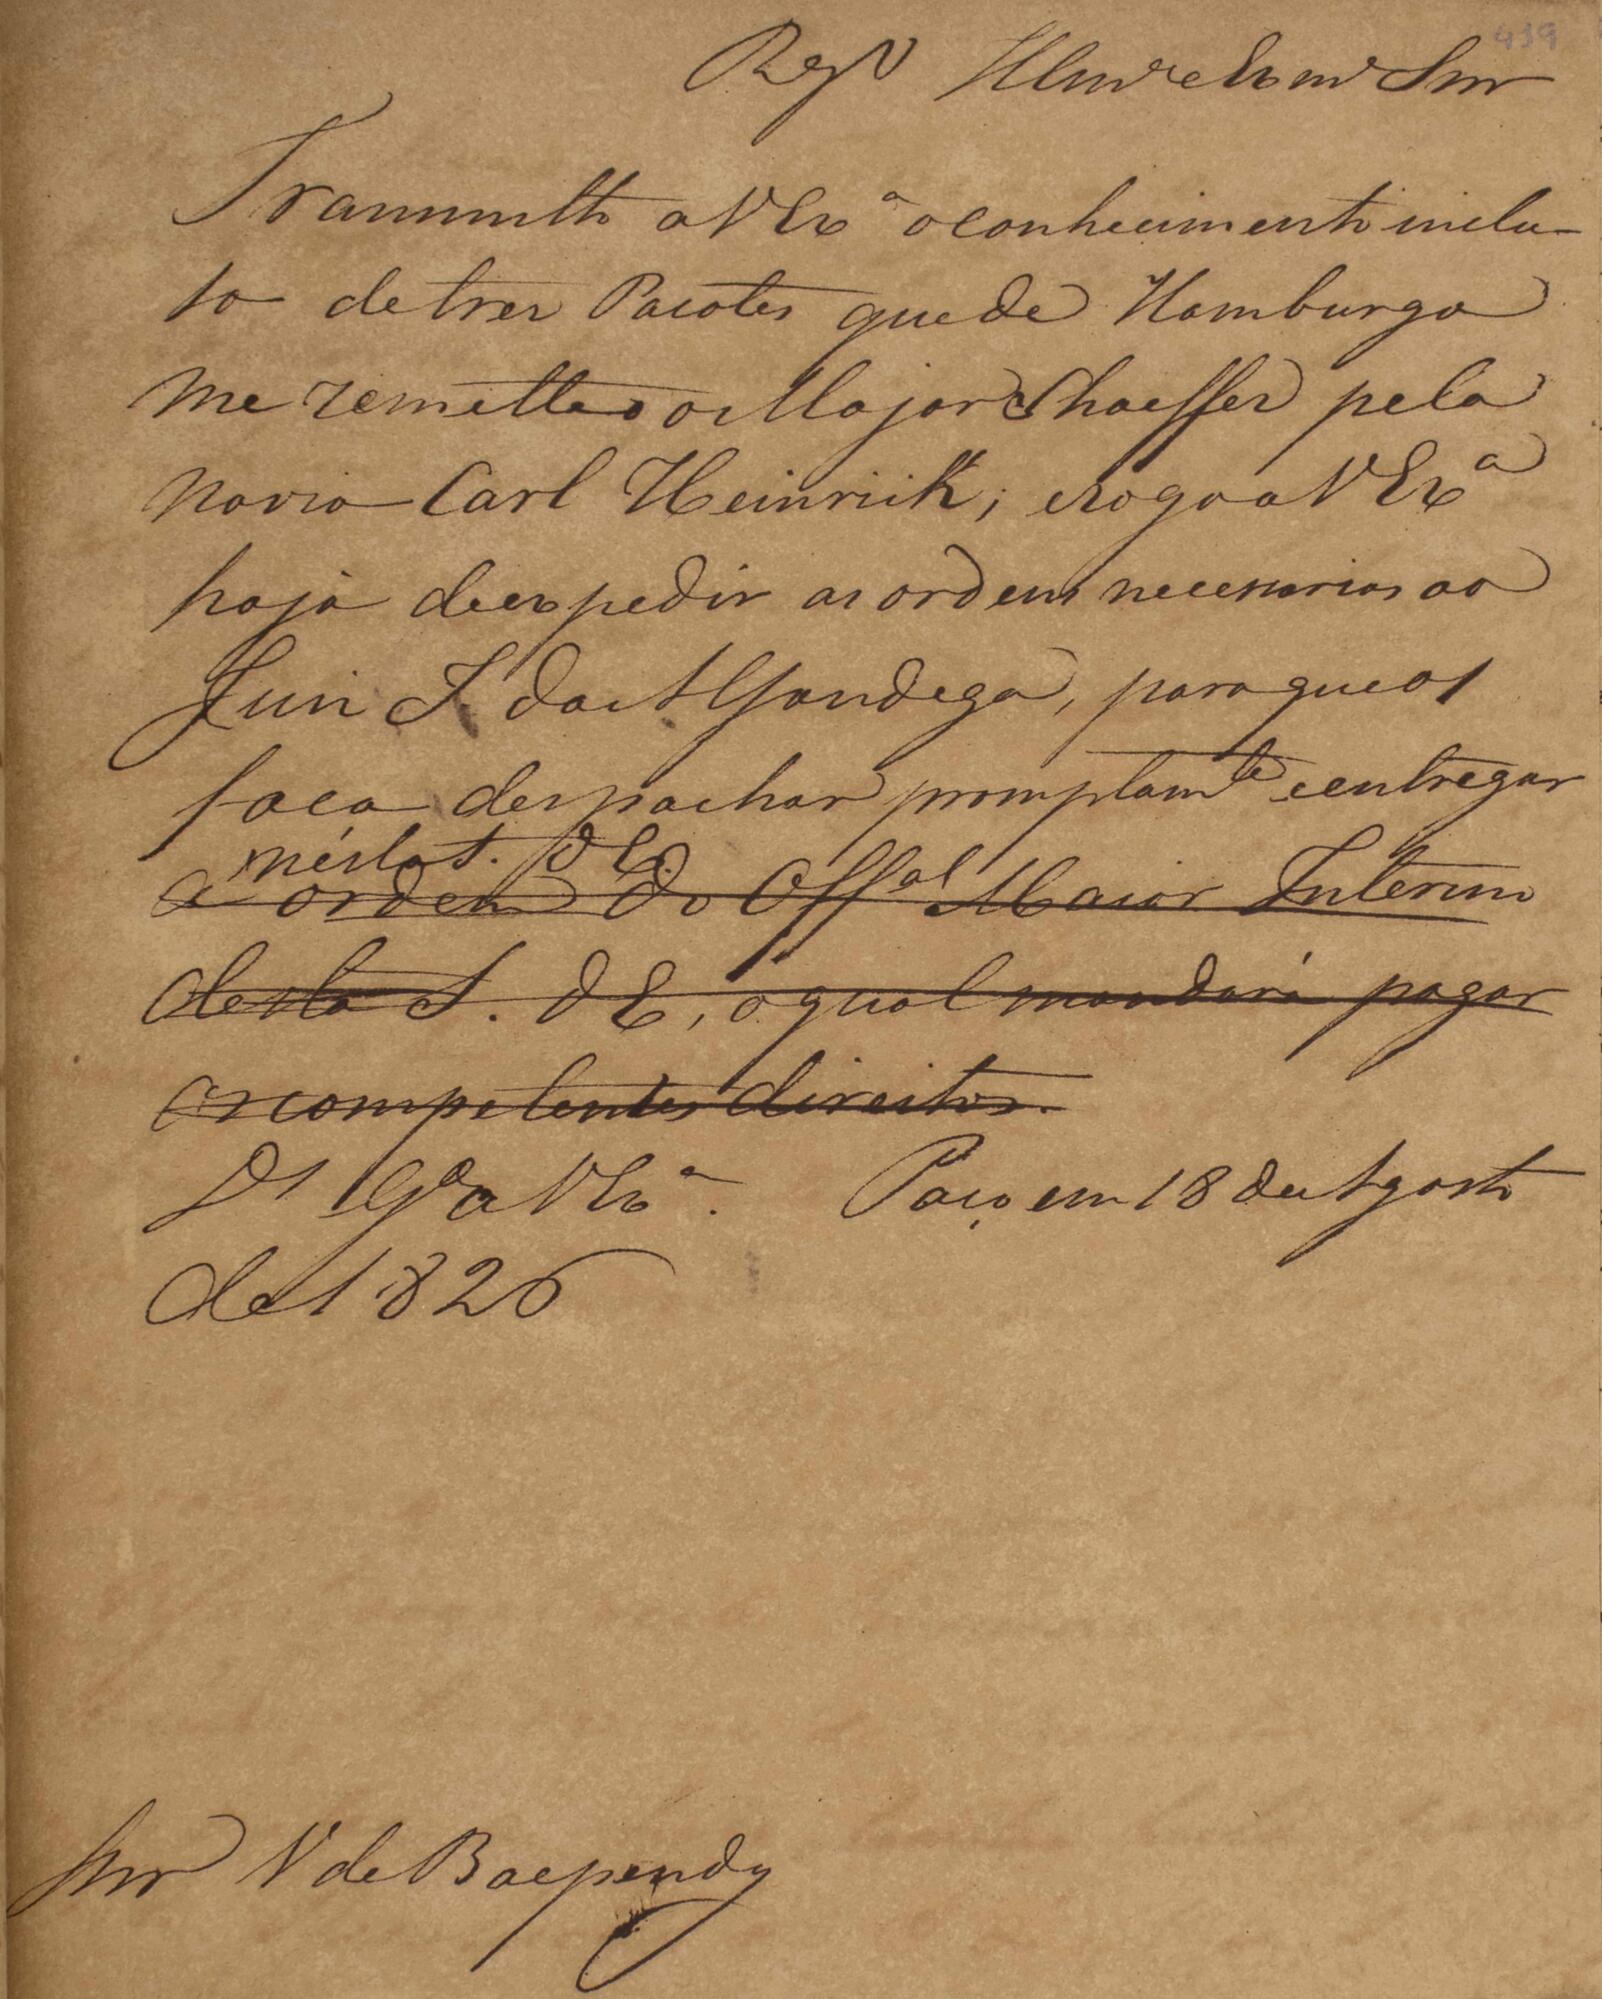 439
Reg.º Illmo e Exmo Snr
Transmitto a V Exª o conhecimento inclu-
so de tres Pacotes que de Hamburgo
me remetteo o Major Schaeffer pelo
Navio Carl Heinrich; e rogo a V Exª
haja de expedir as ordens necessarias ao
Juiz I. da Alfandega, para que os
faça despachar promptamte e entregar
nésta S. d E.
a' ordem do Offal Maior Interino
desta S. d E, o qual mandará pagar
os competentes direitos.
Ds Gde a V Exª. Paço em 18 de Agosto
de 1826
Snr V de Baependy